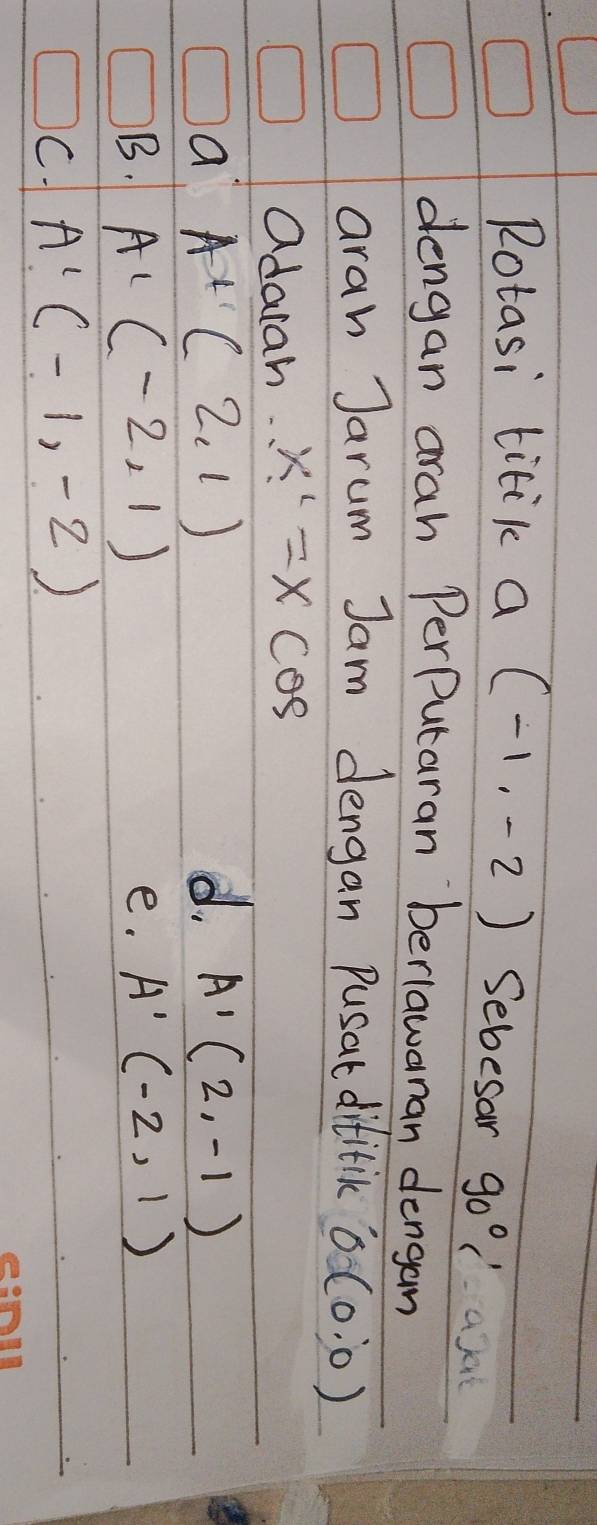 Rotasi titik a (-1, -2) sebesar 90°
dengan arah Perputaran berlawanan dengan
arah Jarum Jam dengan Pusat dititik O(0,0)
adalah.. x' = x cos
a. A' (2,1) d. A' (2,-1)
B. A' (-2,1) e. A' (-2,1)
C. A' (-1,-2)